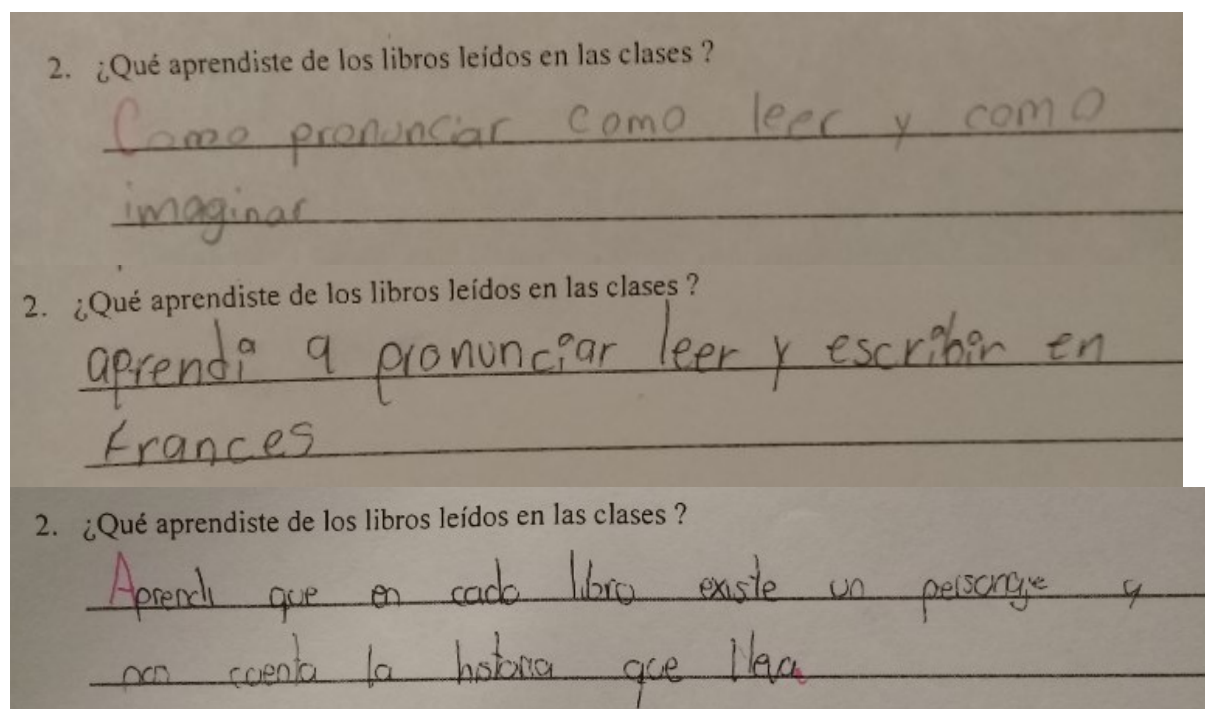 2. ¿Qué aprendiste de los libros leídos en las clases ?
Como pronunciar como leer y como
imaginar
2. ¿Qué aprendiste de los libros leídos en las clases ?
aprendi a pronunciar leer y escribir en
frances
2. ¿Qué aprendiste de los libros leídos en las clases ?
Aprendi que en cada libro existe un personaje y
nos cuenta la historia que lleva